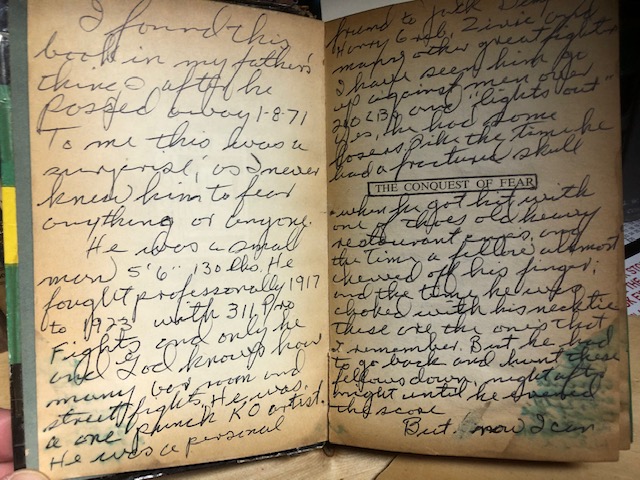 I found this
book in my father's
things after he
passed away 1-8-71
To me this was a
surprise, as I never
knew him to fear
anything or anyone.
He was a small
man 5'6" 130 lbs. He
fought professionally 1917
to 1923 with 311 Pro
Fights and only he
and God knows how
many bar room and
street fights. He was
a one punch KO artist.
He was a personal
friend to Jack
Harry Greb, Zivic and
many other great fighters
I have seen him go
up against men over
200 LBS and "lights out"
Yes, he had some
losers, like the time he
had a fractured skull
THE CONQUEST OF FEAR
when he got hit with
one of those old heavy
restaurant and
the time a fellow almost
chewed off his finger;
and the time he was
choked with his necktie
these are the ones that
I remember. But he had
to go back and hunt these
fellows down, night after
night until he evened
the score
But now I can